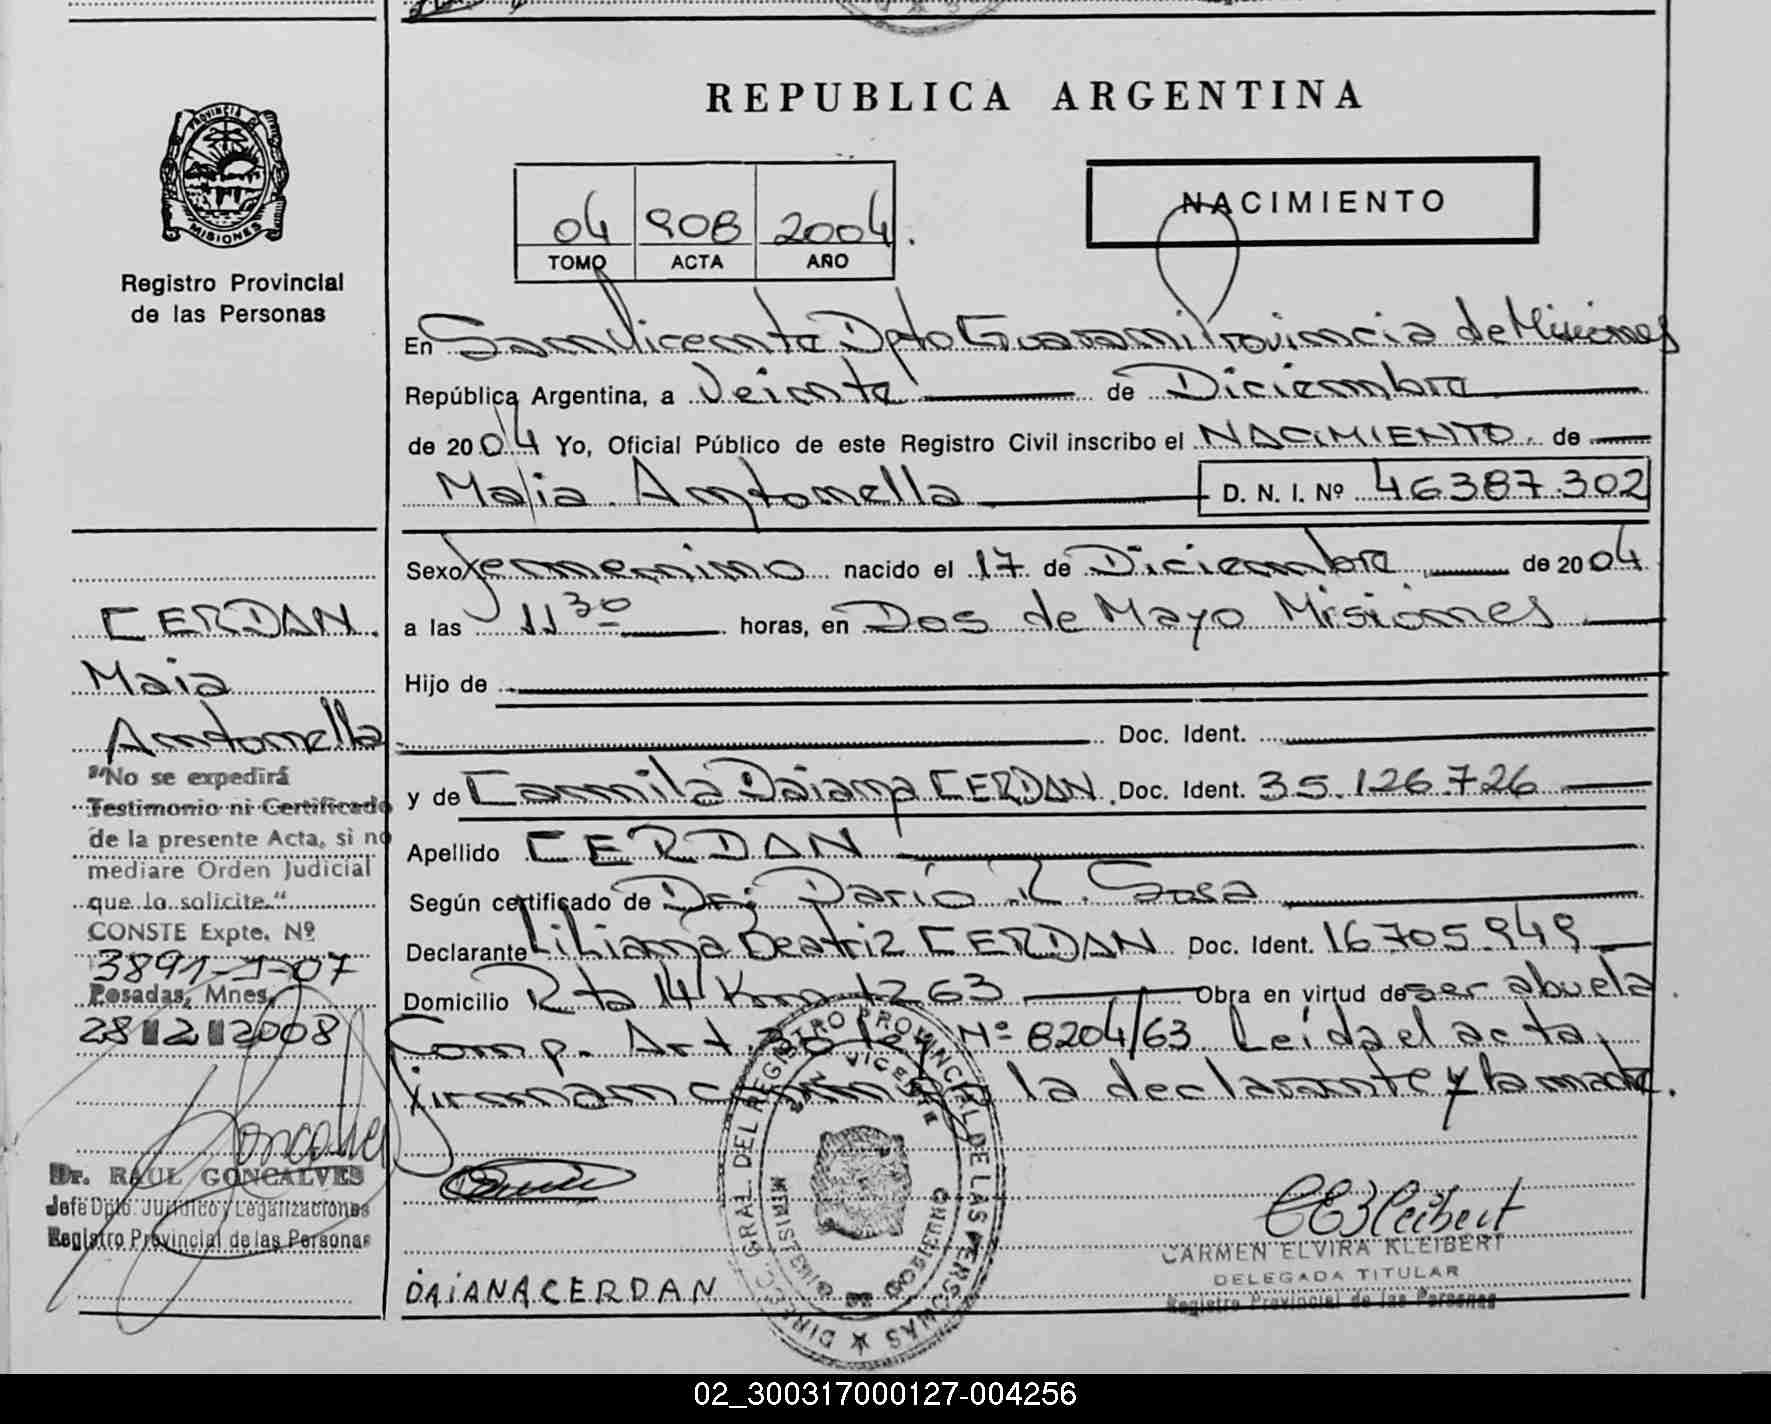 REPUBLICA ARGENTINA
PROVINCIA DE MISIONES
Registro Provincial
de las Personas
04 908 2004
TOMO ACTA AÑO
NACIMIENTO
En San Vicente Dpto Guarani Provincia de Misiones
República Argentina, a Veinte de Diciembre
de 2004 Yo, Oficial Público de este Registro Civil inscribo el NACIMIENTO de
Maia Antonella D. N. I. Nº 46387.302
Sexo femenino nacido el 17 de Diciembre de 2004
a las 11 30 horas, en Dos de Mayo Misiones
Hijo de
Doc. Ident.
y de Camila Daiana CERDAN Doc. Ident. 35.126.726
Apellido CERDAN
Según certificado de Dr. Dario R. Sosa
Declarante Liliana Beatriz CERDAN Doc. Ident. 16705.949
Domicilio Rta 14 Km 1263 Obra en virtud de ser abuela
Comp. Art. 30 ley Nº 8204/63 Leida el acta
firman conmigo la declarante y la madre.
DAiANA CERDAN
CARMEN ELVIRA KLEIBERT
DELEGADA TITULAR
Registro Provincial de las Personas
DIREC. GRAL. DEL REGISTRO PROVINCIAL DE LAS PERSONAS
MINISTERIO DE GOBIERNO
CERDAN
Maia
Antonella
"No se expedirá
Testimonio ni Certificado
de la presente Acta, si no
mediare Orden Judicial
que lo solicite."
CONSTE Expte. Nº
3891-J-07
Posadas, Mnes.
28 12 2008
Dr. RAUL GONCALVES
Jefe Dpto. Jurídico y Legalizaciones
Registro Provincial de las Personas
02_300317000127-004256